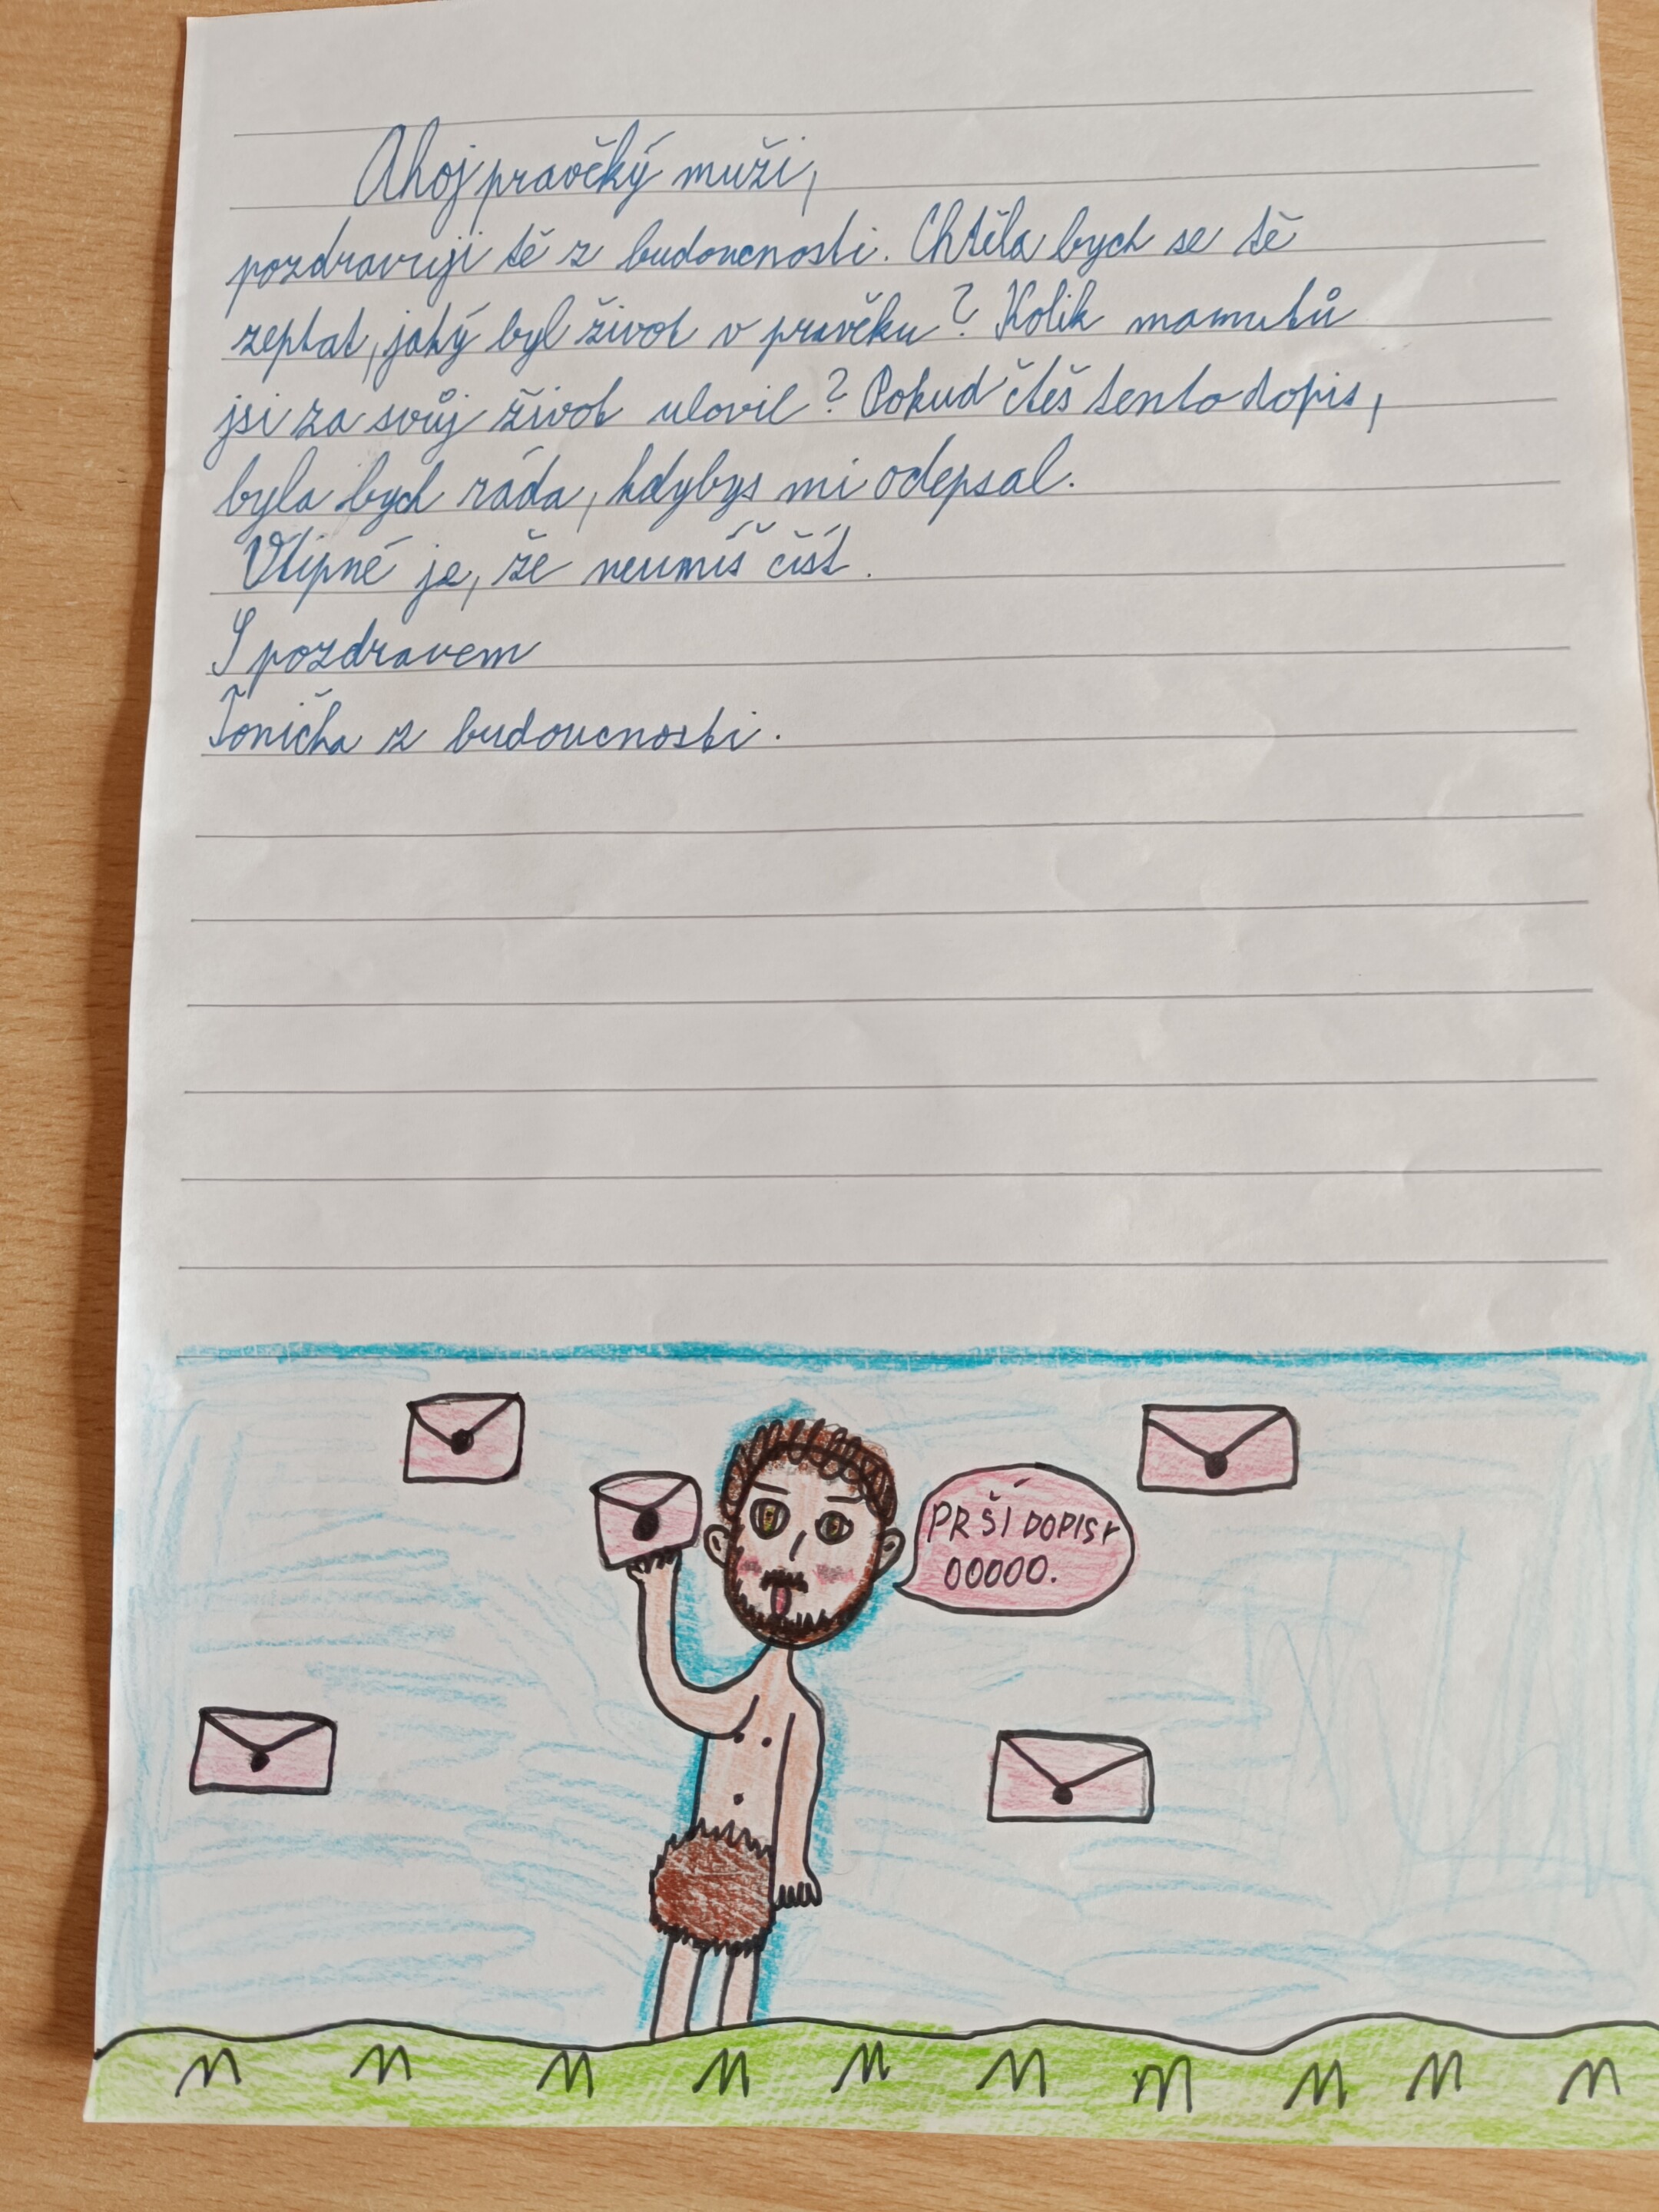 Ahoj pravěký muži,
pozdravuji tě z budoucnosti. Chtěla bych se tě
zeptat, jaký byl život v pravěku? Kolik mamutů
jsi za svůj život ulovil? Pokud čteš tento dopis,
byla bych ráda, kdybys mi odepsal.
Vtipné je, že neumíš číst.
S pozdravem
Tonička z budoucnosti.
PRŠÍ DOPISY
OOOOO.